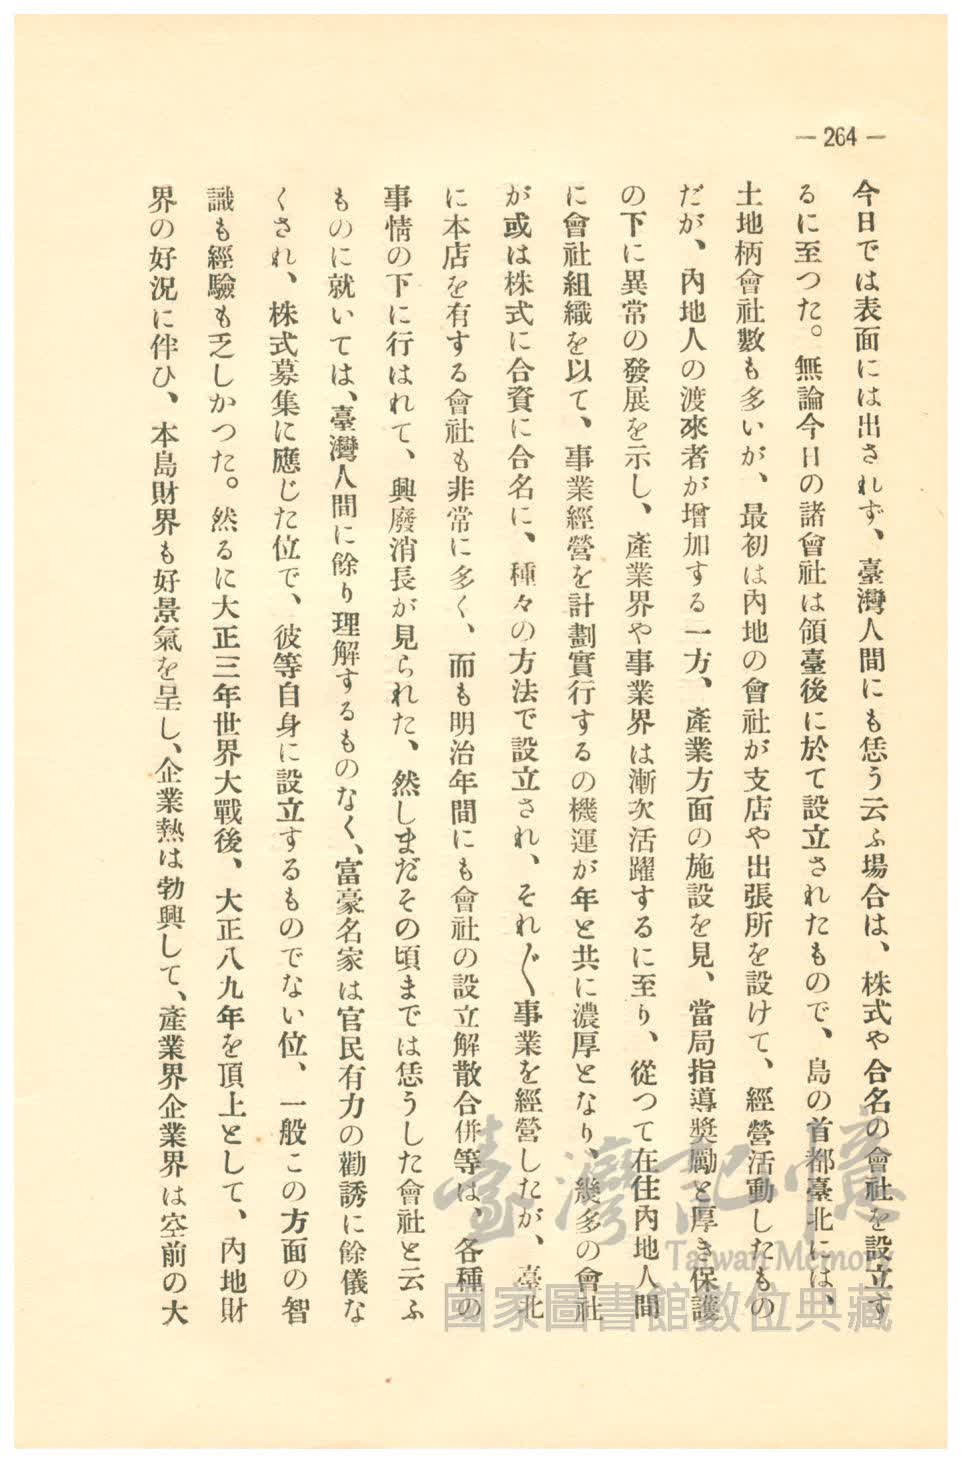 — 264 —
今日では表面には出されず、臺灣人間にも恁う云ふ場合は、株式や合名の會社を設立す
るに至つた。無論今日の諸會社は領臺後に於て設立されたもので、島の首都臺北には、
土地柄會社數も多いが、最初は內地の會社が支店や出張所を設けて、經營活動したもの
だが、內地人の渡來者が增加する一方、產業方面の施設を見、當局指導奬勵と厚き保護
の下に異常の發展を示し、產業界や事業界は漸次活躍するに至り、從つて在住內地人間
に會社組織を以て、事業經營を計劃實行するの機運が年と共に濃厚となり、幾多の會社
が或は株式に合資に合名に、種々の方法で設立され、それ〲事業を經營したが、臺北
に本店を有する會社も非常に多く、而も明治年間にも會社の設立解散合併等は、各種の
事情の下に行はれて、興廢消長が見られた、然しまだその頃までは恁うした會社と云ふ
ものに就いては、臺灣人間に餘り理解するものなく、富豪名家は官民有力の勸誘に餘儀な
くされ、株式募集に應じた位で、彼等自身に設立するものでない位、一般この方面の智
識も經驗も乏しかつた。然るに大正三年世界大戰後、大正八九年を頂上として、內地財
界の好況に伴ひ、本島財界も好景氣を呈し、企業熱は勃興して、產業界企業界は空前の大
臺灣記憶
Taiwan Memory
國家圖書館數位典藏